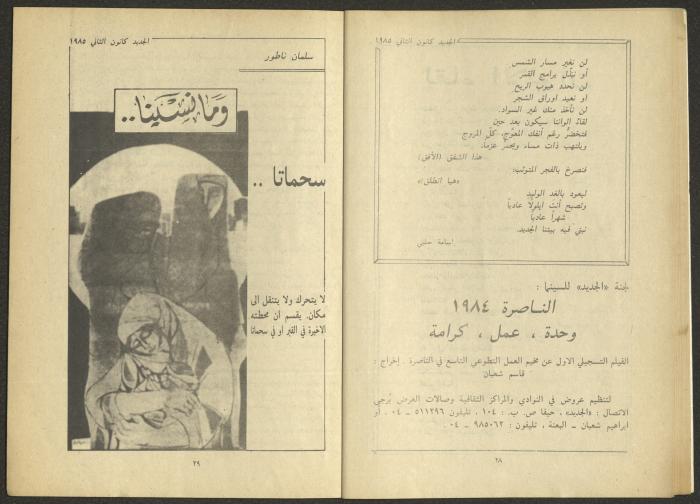 الجديد كانون الثاني ١٩٨٥
لن نغير مسار الشمس
أو نبدّل برامج القمر
لن نحدد هبوب الريح
او نعيد اوراق الشجر
لن نأخذ منك غير السواد.
لقاء الواننا سيكون بعد حين
فتخضرُّ رغم أنفك المعوّج، كلّ المروج
ويلتهب ذات مساء ويحمرّ عزماً.
هذا الشفق (الأفق)
فنصرخ بالفجر المتوثب:
«هيا انطلق!»
ليعود بالغد الوليد
وتصبح أنت ايلولا عادياً
شهراً عادياً
نبني فيه بيتنا الجديد.
اسامة حلبي
لجنة «الجديد» للسينما :
الناصرة ١٩٨٤
وحدة ، عمل ، كرامة
الفيلم التسجيلي الاول عن مخيم العمل التطوعي التاسع في الناصرة . إخراج :
قاسم شعبان
لتنظيم عروض في النوادي والمراكز الثقافية وصالات العرض يُرجى
الاتصال : «الجديد» ، حيفا ص. ب. : ١٠٤ ، تليفون ٥١١٢٩٦ ـ ٠٤ . أو
ابراهيم شعبان ـ البعنة ، تليفون : ٩٨٥٠٦٢ ـ ٠٤ .
٢٨
الجديد كانون الثاني ١٩٨٥
سلمان ناطور
وما نسينا..
سحماتا ..
لا يتحرك ولا يتنقل الى
مكان. يقسم ان محطته
الاخيرة في القبر او في سحماتا
٢٩